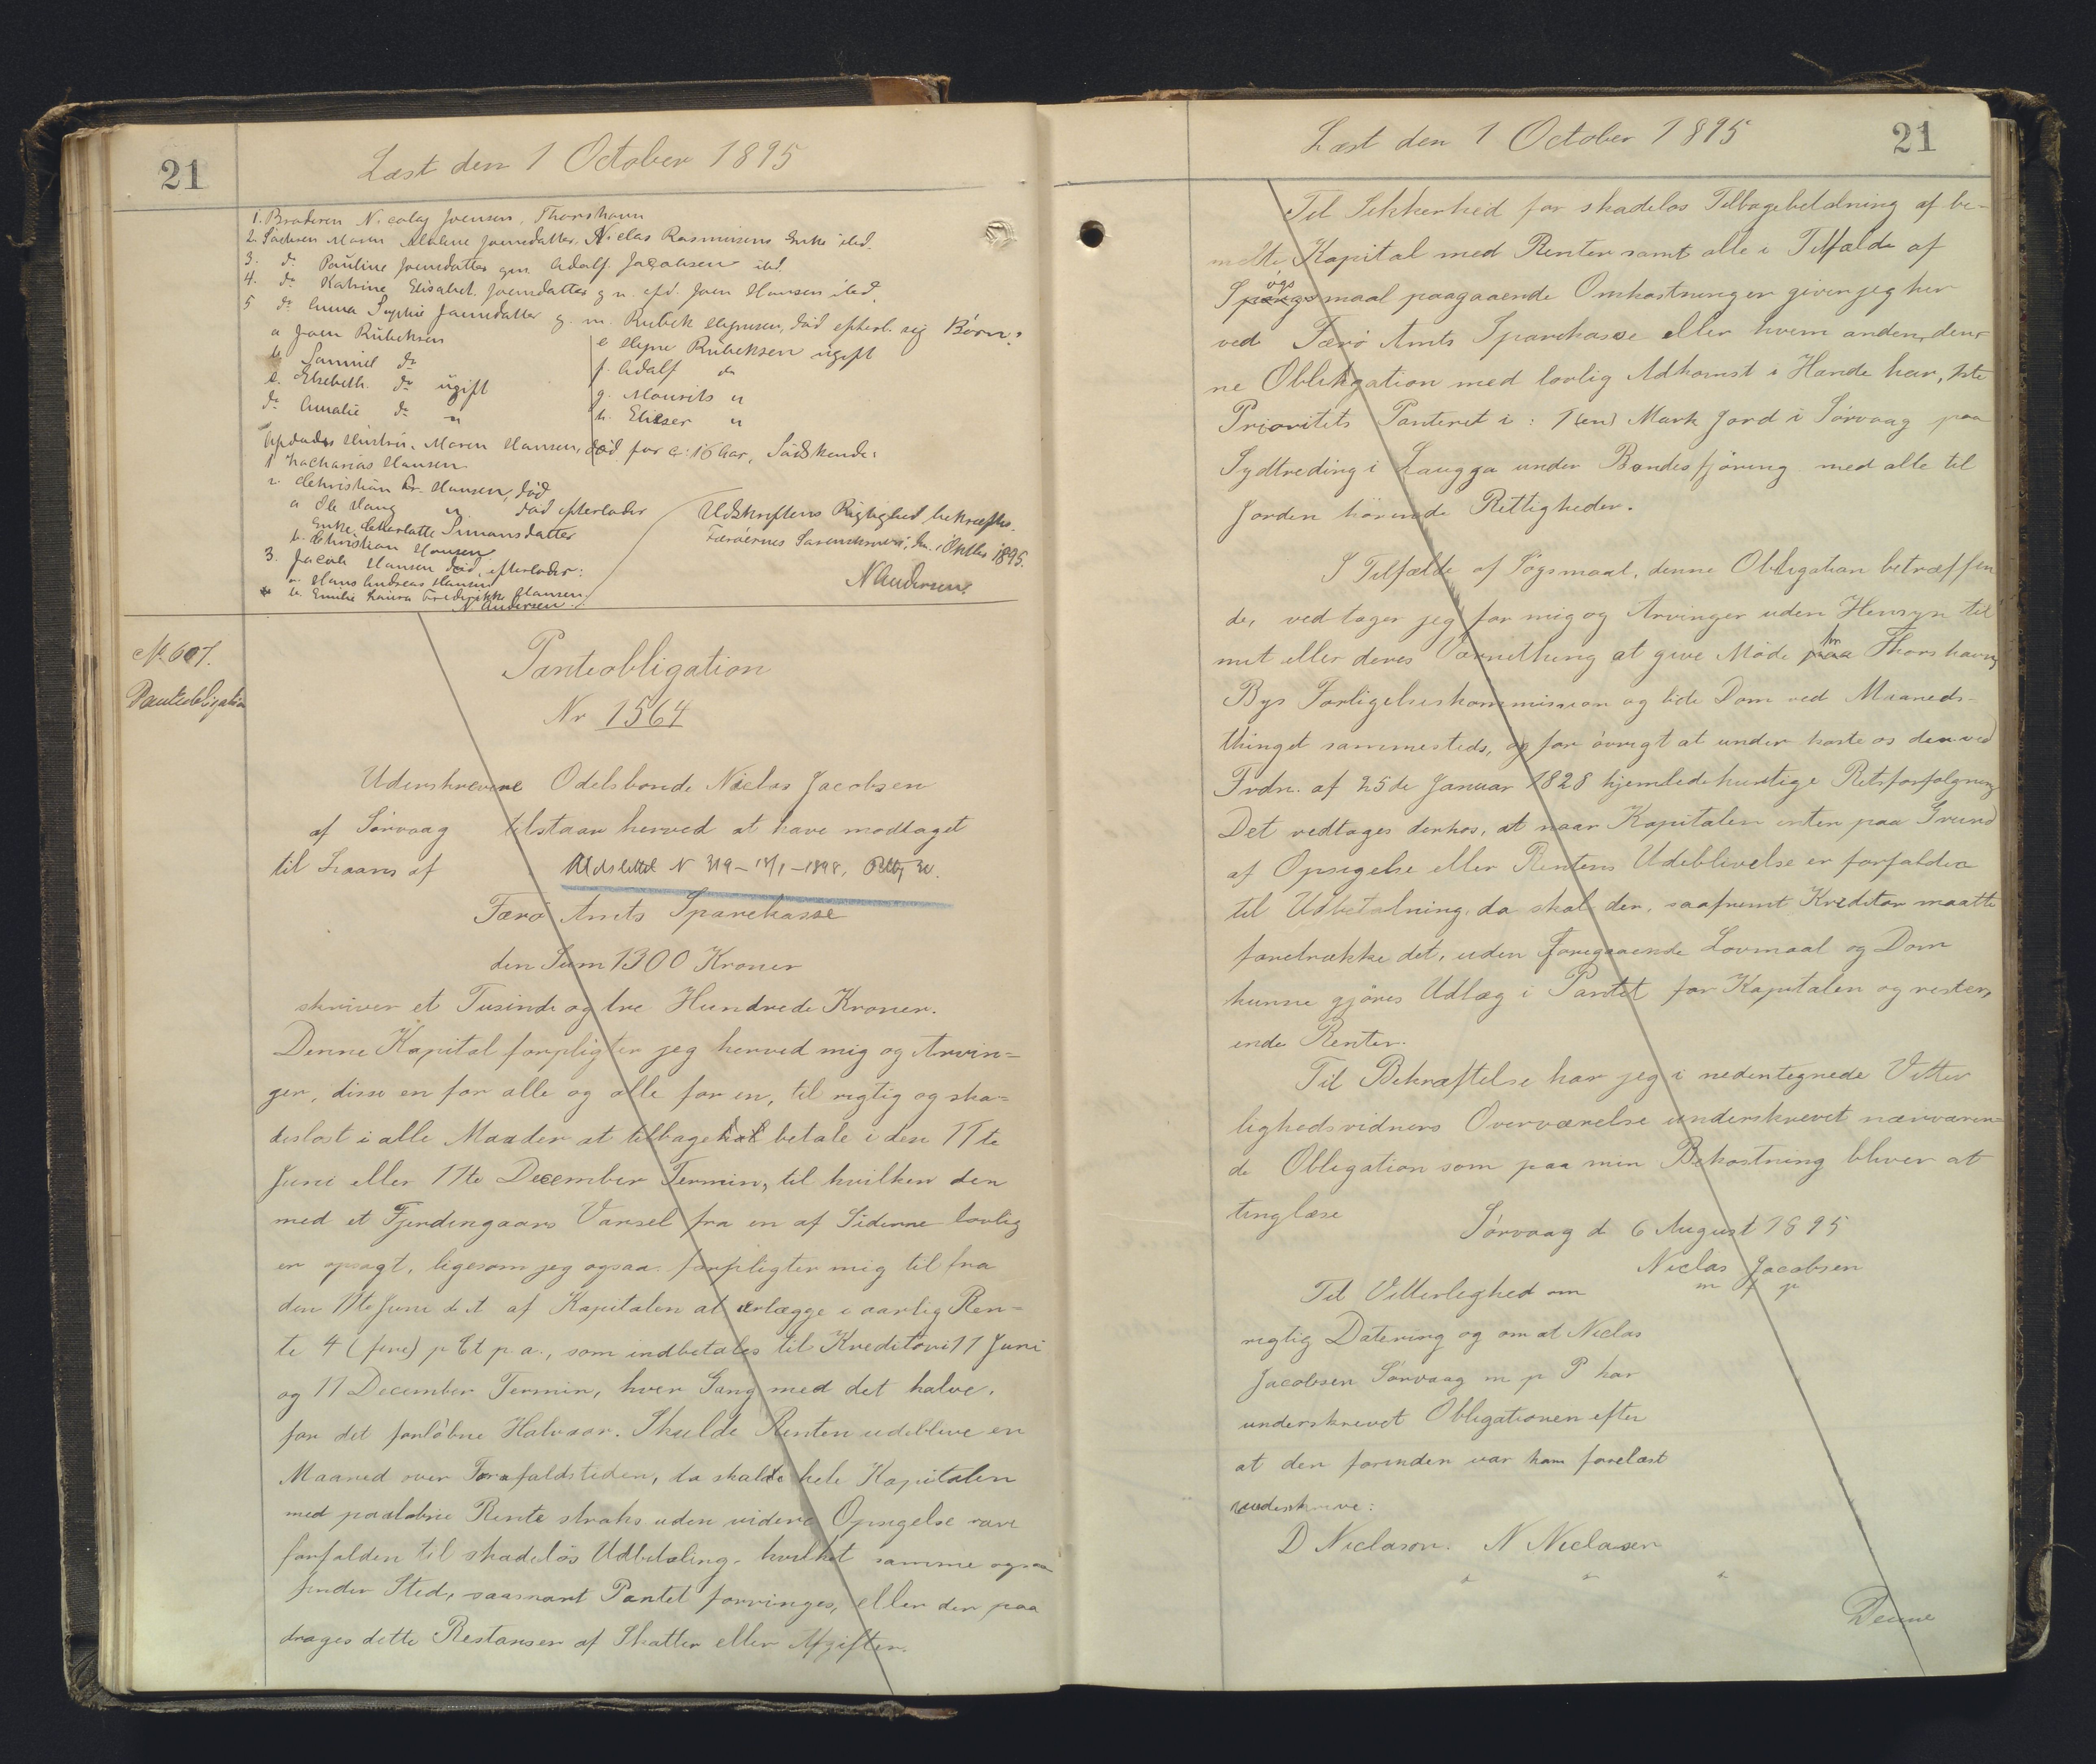 21
Læst den 1 October 1895
1. Broderen Nicolaj Joensen, Thorshavn
2. Søsteren Maren Malene Joensdatter, Niclas Rasmussens Enke ibid.
3. do Pauline Joensdatter gm. Adolf Jacobsen ibd.
4. do Katrine Elisabet Joensdatter g. m. Joen Hansen ibd.
5 do Anna Sophie Joensdatter g. m. Rubek død efterl. sig Børn:
a Joen Rubeksen
b. Samuel do
c. Elsebeth do ugift
d. Amalie do "
e Rubeksen ugift
f. Adolf do
g. Mourits "
h. Elieser "
Afdødes Hustru, Maren Hansen, død for c: 16 Aar, Sødskende:
1 Zacharias Hansen
2. Christian Hansen, død
a Ole Haug " død efterlader
Enke Charlotte Simonsdatter
b. Christian Hansen
3. Jacob Hansen død, efterlader:
a. Hans Andreas Hansen
b. Emilie Laura Frederikke Hansen.
N Andersen
Udskriftens Rigtighed bekræftes.
Færøernes 1895.
N Andersen.
No 607.
Panteobligation
Panteobligation
Nr 1564
Underskrevne Odelsbonde Niclas Jacobsen
af Sørvaag tilstaar herved at have modtaget
til Laans af
Udslettet N 319 – 1898,
Færø Amts Sparekasse
den Sum 1300 Kroner
skriver et Tusinde og tre Hundrede Kroner.
Denne Kapital forpligter jeg herved mig og Arvin=
ger, disse en for alle og alle for en, til rigtig og ska=
desløst i alle Maader at tilbage betale i den 11te
Juni eller 11te December Termin, til hvilken den
med et Fjerdingaars Varsel fra en af Siderne lovlig
er opsagt, ligesom jeg ogsaa forpligter mig til fra
den 11te Juni d. A. af Kapitalen at erlægge i aarlig Ren=
te 4 (fire) p Ct p. a., som indbetales til Kreditor i 11 Juni
og 11 December Termin, hver Gang med det halve,
for det forløbne Halvaar. Skulde Renten udeblive en
Maaned over Forfaldstiden, da skal hele Kapitalen
med paaløbne Rente straks uden videre Opsigelse være
forfalden til skadesløs Udbetaling, hvilket samme ogsaa
finder Sted, saasnart Pantet forringes, eller der paa
drages dette Restanser af Skatter eller Afgifter.
Læst den 1 October 1895
21
Til Sikkerhed for skadesløs Tilbagebetalning af be=
meldte Kapital med Renter samt alle i Tilfælde af
Søgsmaal paagaaende Omkostninger giver jeg her
ved Færø Amts Sparekasse eller hvem anden, den=
ne Obligation med lovlig Adkomst i Hænde har, 1ste
Prioritets Panteret i: 1 (en) Mark Jord i Sørvaag paa
Sydtreding i Laugga under Bøndesfjöring med alle til
Jorden hørende Rettigheder.
I Tilfælde af Søgsmaal, denne Obligation betræffen
de, vedtager jeg for mig og Arvinger uden Hensyn til
mit eller deres Værnething at give Møde for Thorshavns
Bys Forligelseskommission og lide Dom ved Maaneds=
thinget sammesteds, og for øvrigt at underkaste os den ved
Frdn. af 25de Januar 1828 hjemlede hurtige Retsforfølgning
Det vedtages derhos, at naar Kapitalen enten paa Grund
af Opsigelse eller Rentens Udeblivelse er forfalden
til Udbetalning, da skal der, saafremt Kreditor maatte
foretrække det, uden foregaaende Lovmaal og Dom
kunne gjøres Udlæg i Pantet for Kapitalen og rester,
ende Renter.
Til Bekræftelse har jeg i nedentegnede Vitter
lighedsvidners Overværelse underskrevet nærværen=
de Obligation som paa min Bekostning bliver at
tinglæse
Sørvaag d 6 August 1895
Niclas Jacobsen
m f p
Til Vitterlighed om
rigtig Datering og om at Niclas
Jacobsen Sørvaag m p P har
underskrevet Obligationen efter
at den forinden var ham forelæst
underskrive:
D Niclason. N Niclasen
Denne